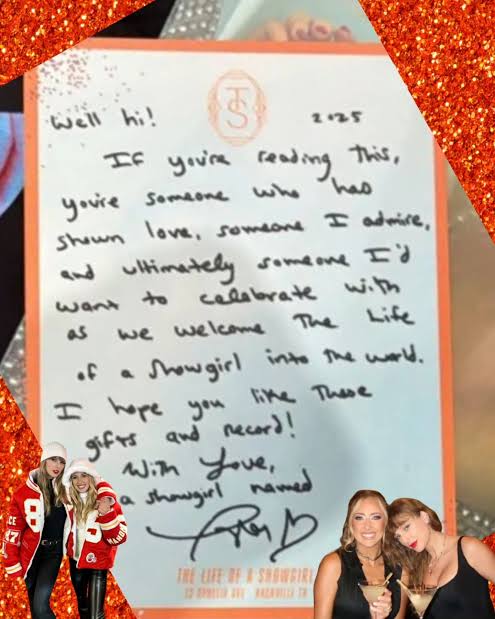 TS
Well hi! 2025
If you're reading this,
you're someone who has
shown love, someone I admire,
and ultimately someone I'd
want to celebrate with
as we welcome The Life
of a Showgirl into the world.
I hope you like these
gifts and record!
With Love,
a showgirl named
THE LIFE OF A SHOWGIRL
13 OPHELIA AVE NASHVILLE TN
87